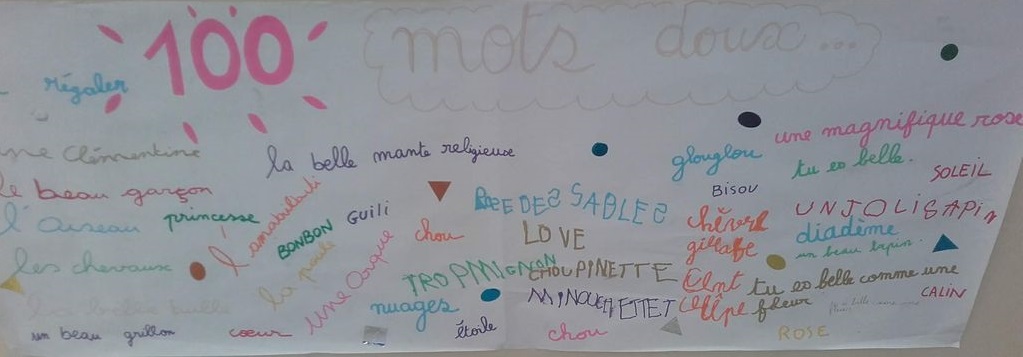 100 mots doux...
régaler
une magnifique rose
une Clémentine
la belle mante religieuse
glouglou
tu es belle.
SOLEIL
le beau garçon
BISOU
l'oiseau
princesse
l'amabilité
GUILI
FEE DES SABLES
UN JOLI SAPIN
BONBON
chou
LOVE
diadème
un beau lapin.
les chevaux
une orque
TROP MIGNON
CHOUPINETTE
tu es belle comme une
fleur
CALIN
nuages
MINOUCHETTE
un beau grillon
coeur
étoile
chou
ROSE